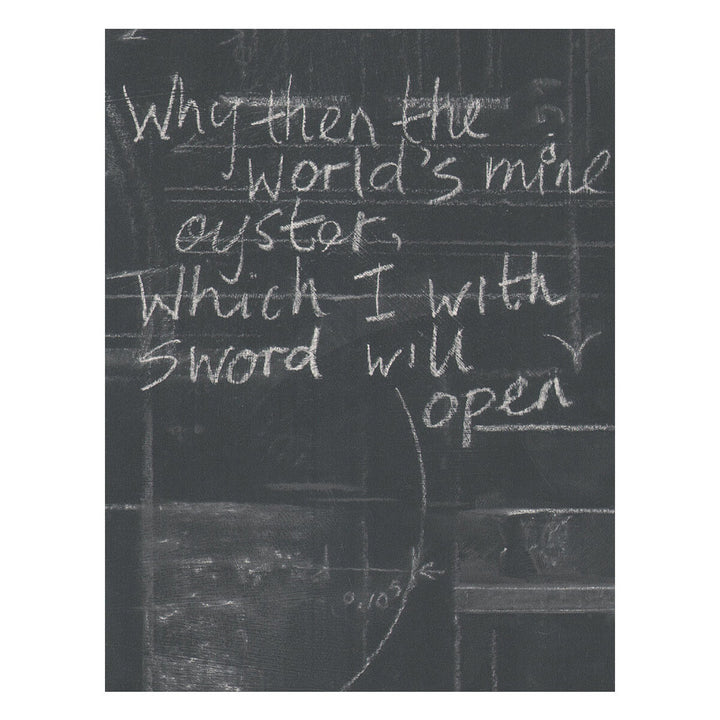 Why then the
world's mine
oyster,
Which I with
sword will
open
0.105